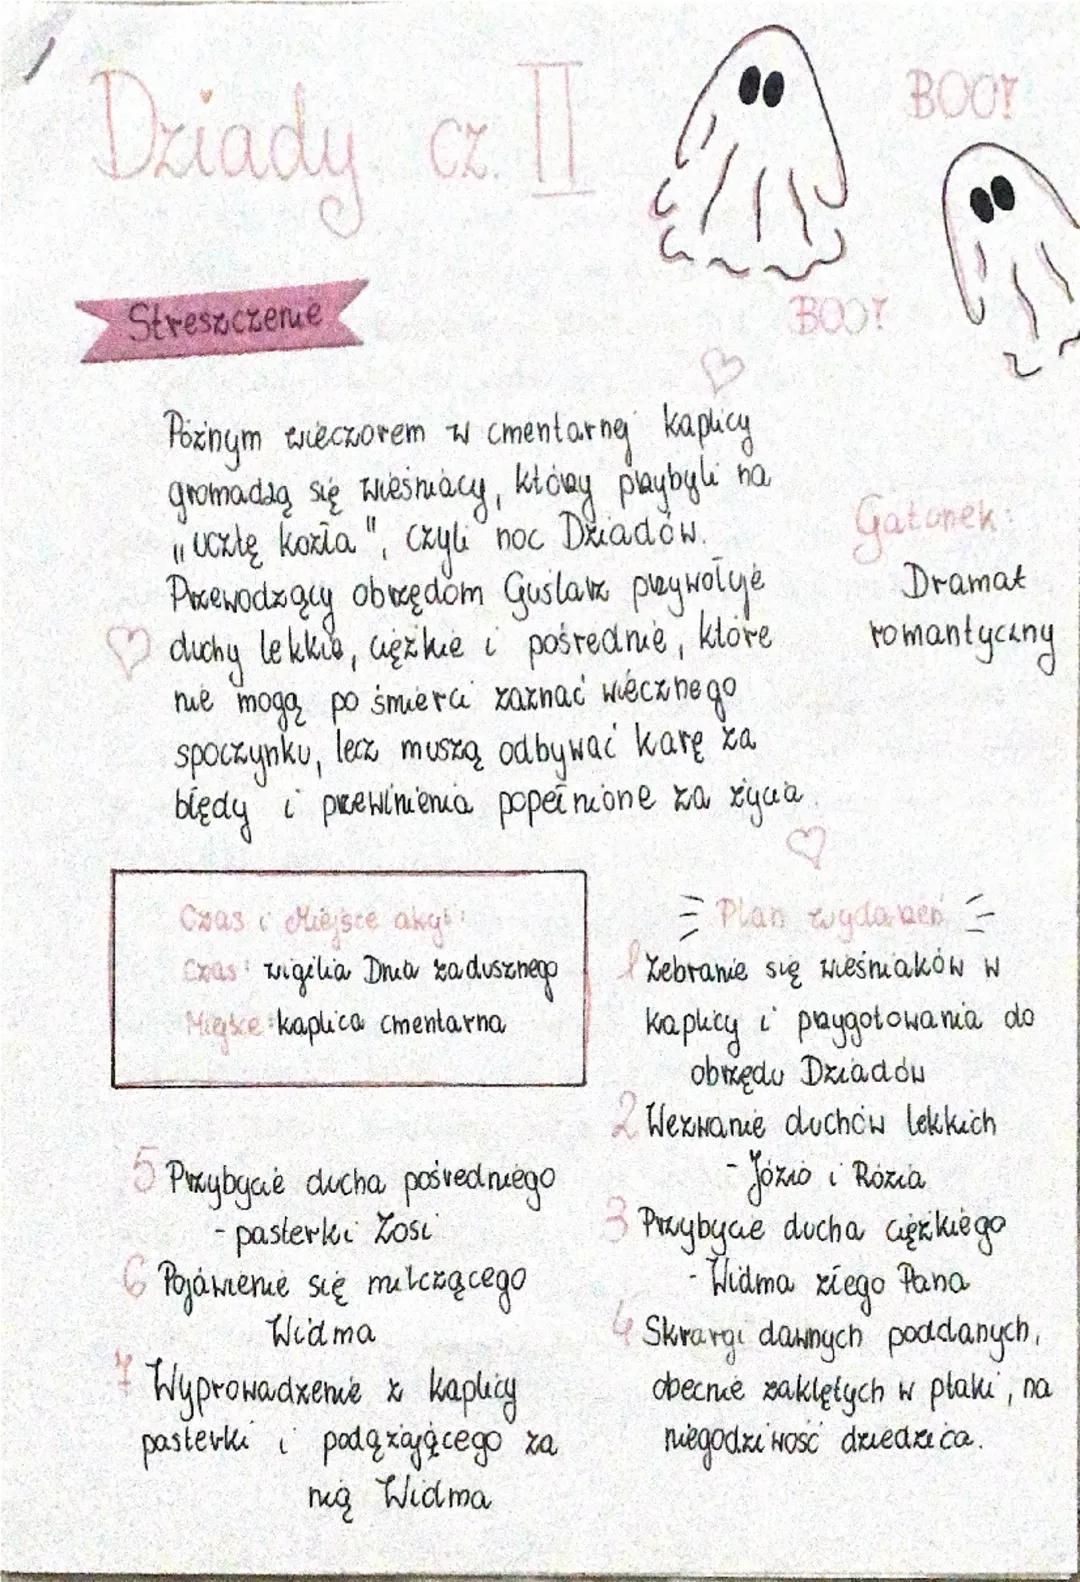 Dziady cz. II
BOO!
BOO!
Streszczenie
Późnym wieczorem w cmentarnej kaplicy
gromadzą się wieśniacy, którzy przybyli na
„ucztę kozła", czyli noc Dziadów.
Przewodzący obrzędom Guślarz przywołuje
duchy lekkie, ciężkie i pośrednie, które
nie mogą po śmierci zaznać wiecznego
spoczynku, lecz muszą odbywać karę za
błędy i przewinienia popełnione za życia.
Gatunek:
Dramat
romantyczny
Czas i Miejsce akcji:
Czas: wigilia Dnia zadusznego
Miejsce: kaplica cmentarna
Plan wydarzeń
1 Zebranie się wieśniaków w
kaplicy i przygotowania do
obrzędu Dziadów
2 Wezwanie duchów lekkich
- Józio i Rózia
3 Przybycie ducha ciężkiego
- Widma złego Pana
4 Skrargi dawnych poddanych,
obecnie zaklętych w ptaki, na
niegodziwość dziedzica.
5 Przybycie ducha pośredniego
- pasterki Zosi
6 Pojawienie się milczącego
Widma
7 Wyprowadzenie z kaplicy
pasterki i podążającego za
nią Widma